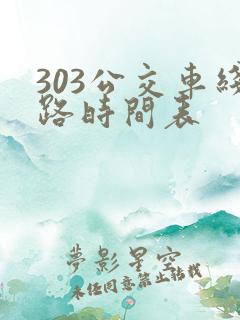 303公交車綫
路時間表
夢影星空
未任同意禁止轉載